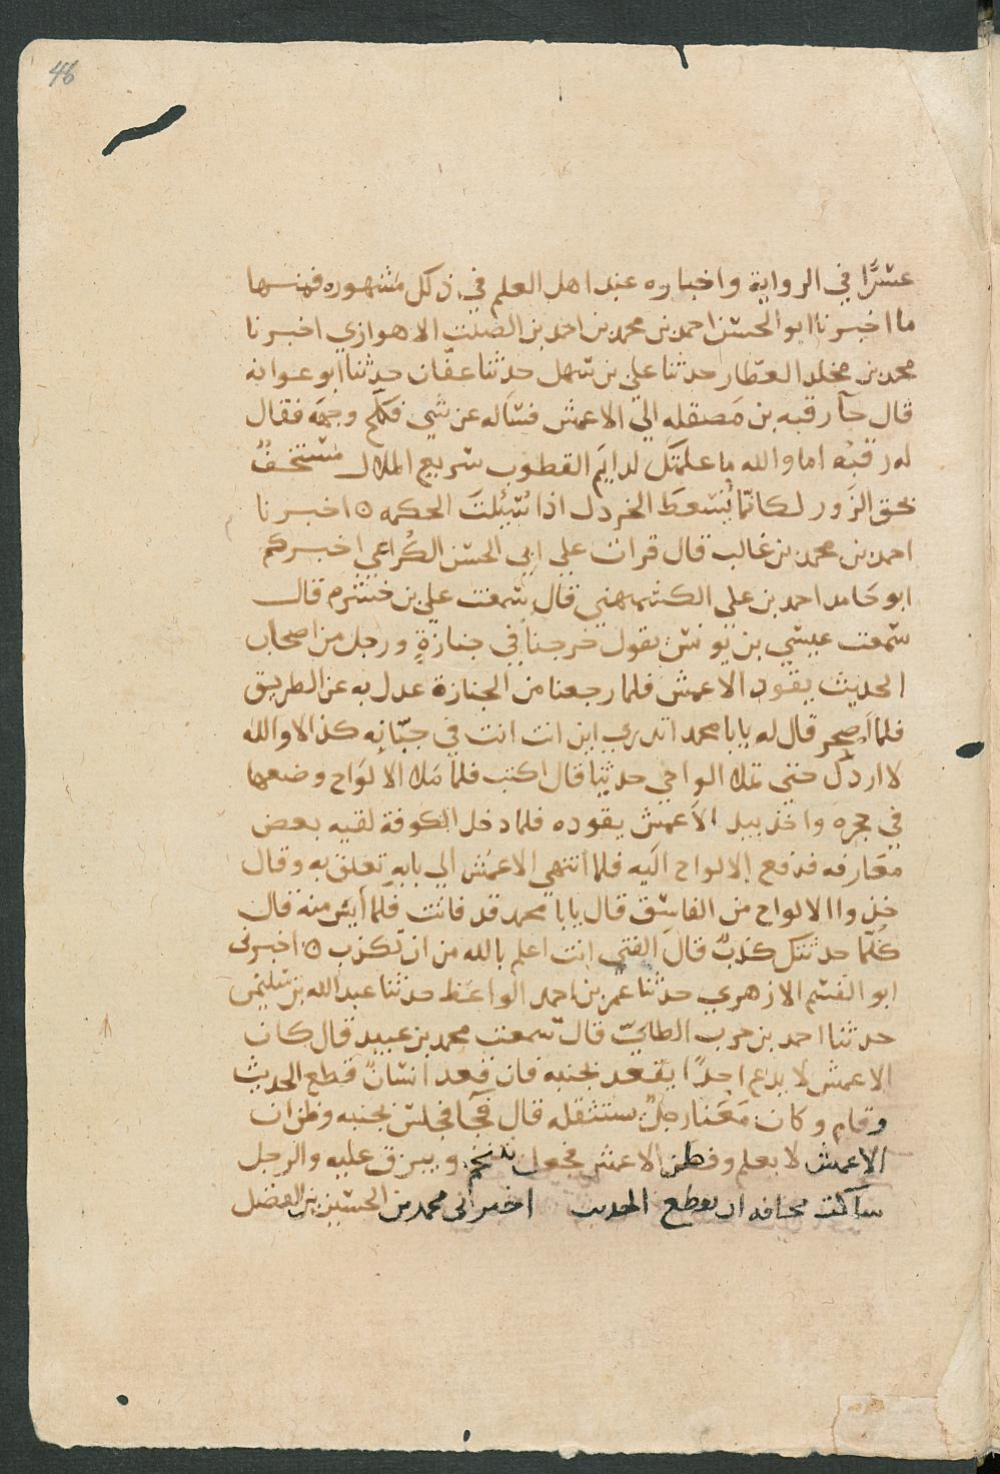 46
عسِرًا في الرواية واخباره عند اهل العلم في ذلك مشهوره فمنها
ما اخبرنا ابو الحسن احمد بن محمد بن احمد بن الصلت الاهوازي اخبرنا
محمد بن مخلد العطّار حدثنا علي بن سهل حدثنا عفّان حدثنا ابو عوانه
قال جآ رقبه بن مَصقله الي الاعمش فسَاله عن شي فكلح وجهه فقال
له رقبَه اما والله ما علمتك لدايَم القطوب سريع الملال مستخفٌ
بحق الزَور لكانمّا تُسْعطَ الخردل اذا سُئِلتَ الحكمه ٥ اخبرنا
احمد بن محمد بن غالب قال قرات علي ابي الحسن الكُراعي اخبركم
ابو حَامد احمد بن علي الكشميهني قال سَمعت علي بن خشرم قال
سَمعت عيسَي بن يونسَ يقول خرجنا في جنازةٍ ورجل من اصحاب
الحديث يقود الاعمش فلما رجعنا من الجنازة عدل به عن الطريق
فلما اصحر قال له يابا محمد اتدري اين انت انت في جبّانه كذا لا والله
لا اردك حتي تملا الواحي حديثا قال اكتب فلما مَلا الالوَاح وضعها
في حجره واخذ بيد الاعمش يقوده فلما دخل الكوفة لقيه بعض
معَارفه فدفع الالواح اليه فلما انتهي الاعمش الي بابه تعلق به وقال
خذوا الالواح من الفاسَق قال يابا محمد قد فاتت فلما أيسَ منه قال
كُلّما حدثتك كذبٌ قال الفتي انت اعلم بالله من ان تكذب ٥ اخبرني
ابو القسَم الازهري حدثنا عمر بن احمد الواعظ حدثنا عبد الله بن سليمن
حدثنا احمد بن حرب الطاييّ قال سَمعت محمد بن عبيد قال كان
الاعمش لا يدع احدًا يقعد بجنبه فان قعد انسَانٌ قطع الحديث
وقام وكان مَعَنا رجلٌ يستثقله قال فجآ فجلس بجنبه وظن ان
الاعمش لا يعلم وفطن الاعمش فجعل يتنخم ويبزق عليه والرجل
ساكت مخافه ان يقطع الحديث اخبرني محمد بن الحسَين بن الفضل